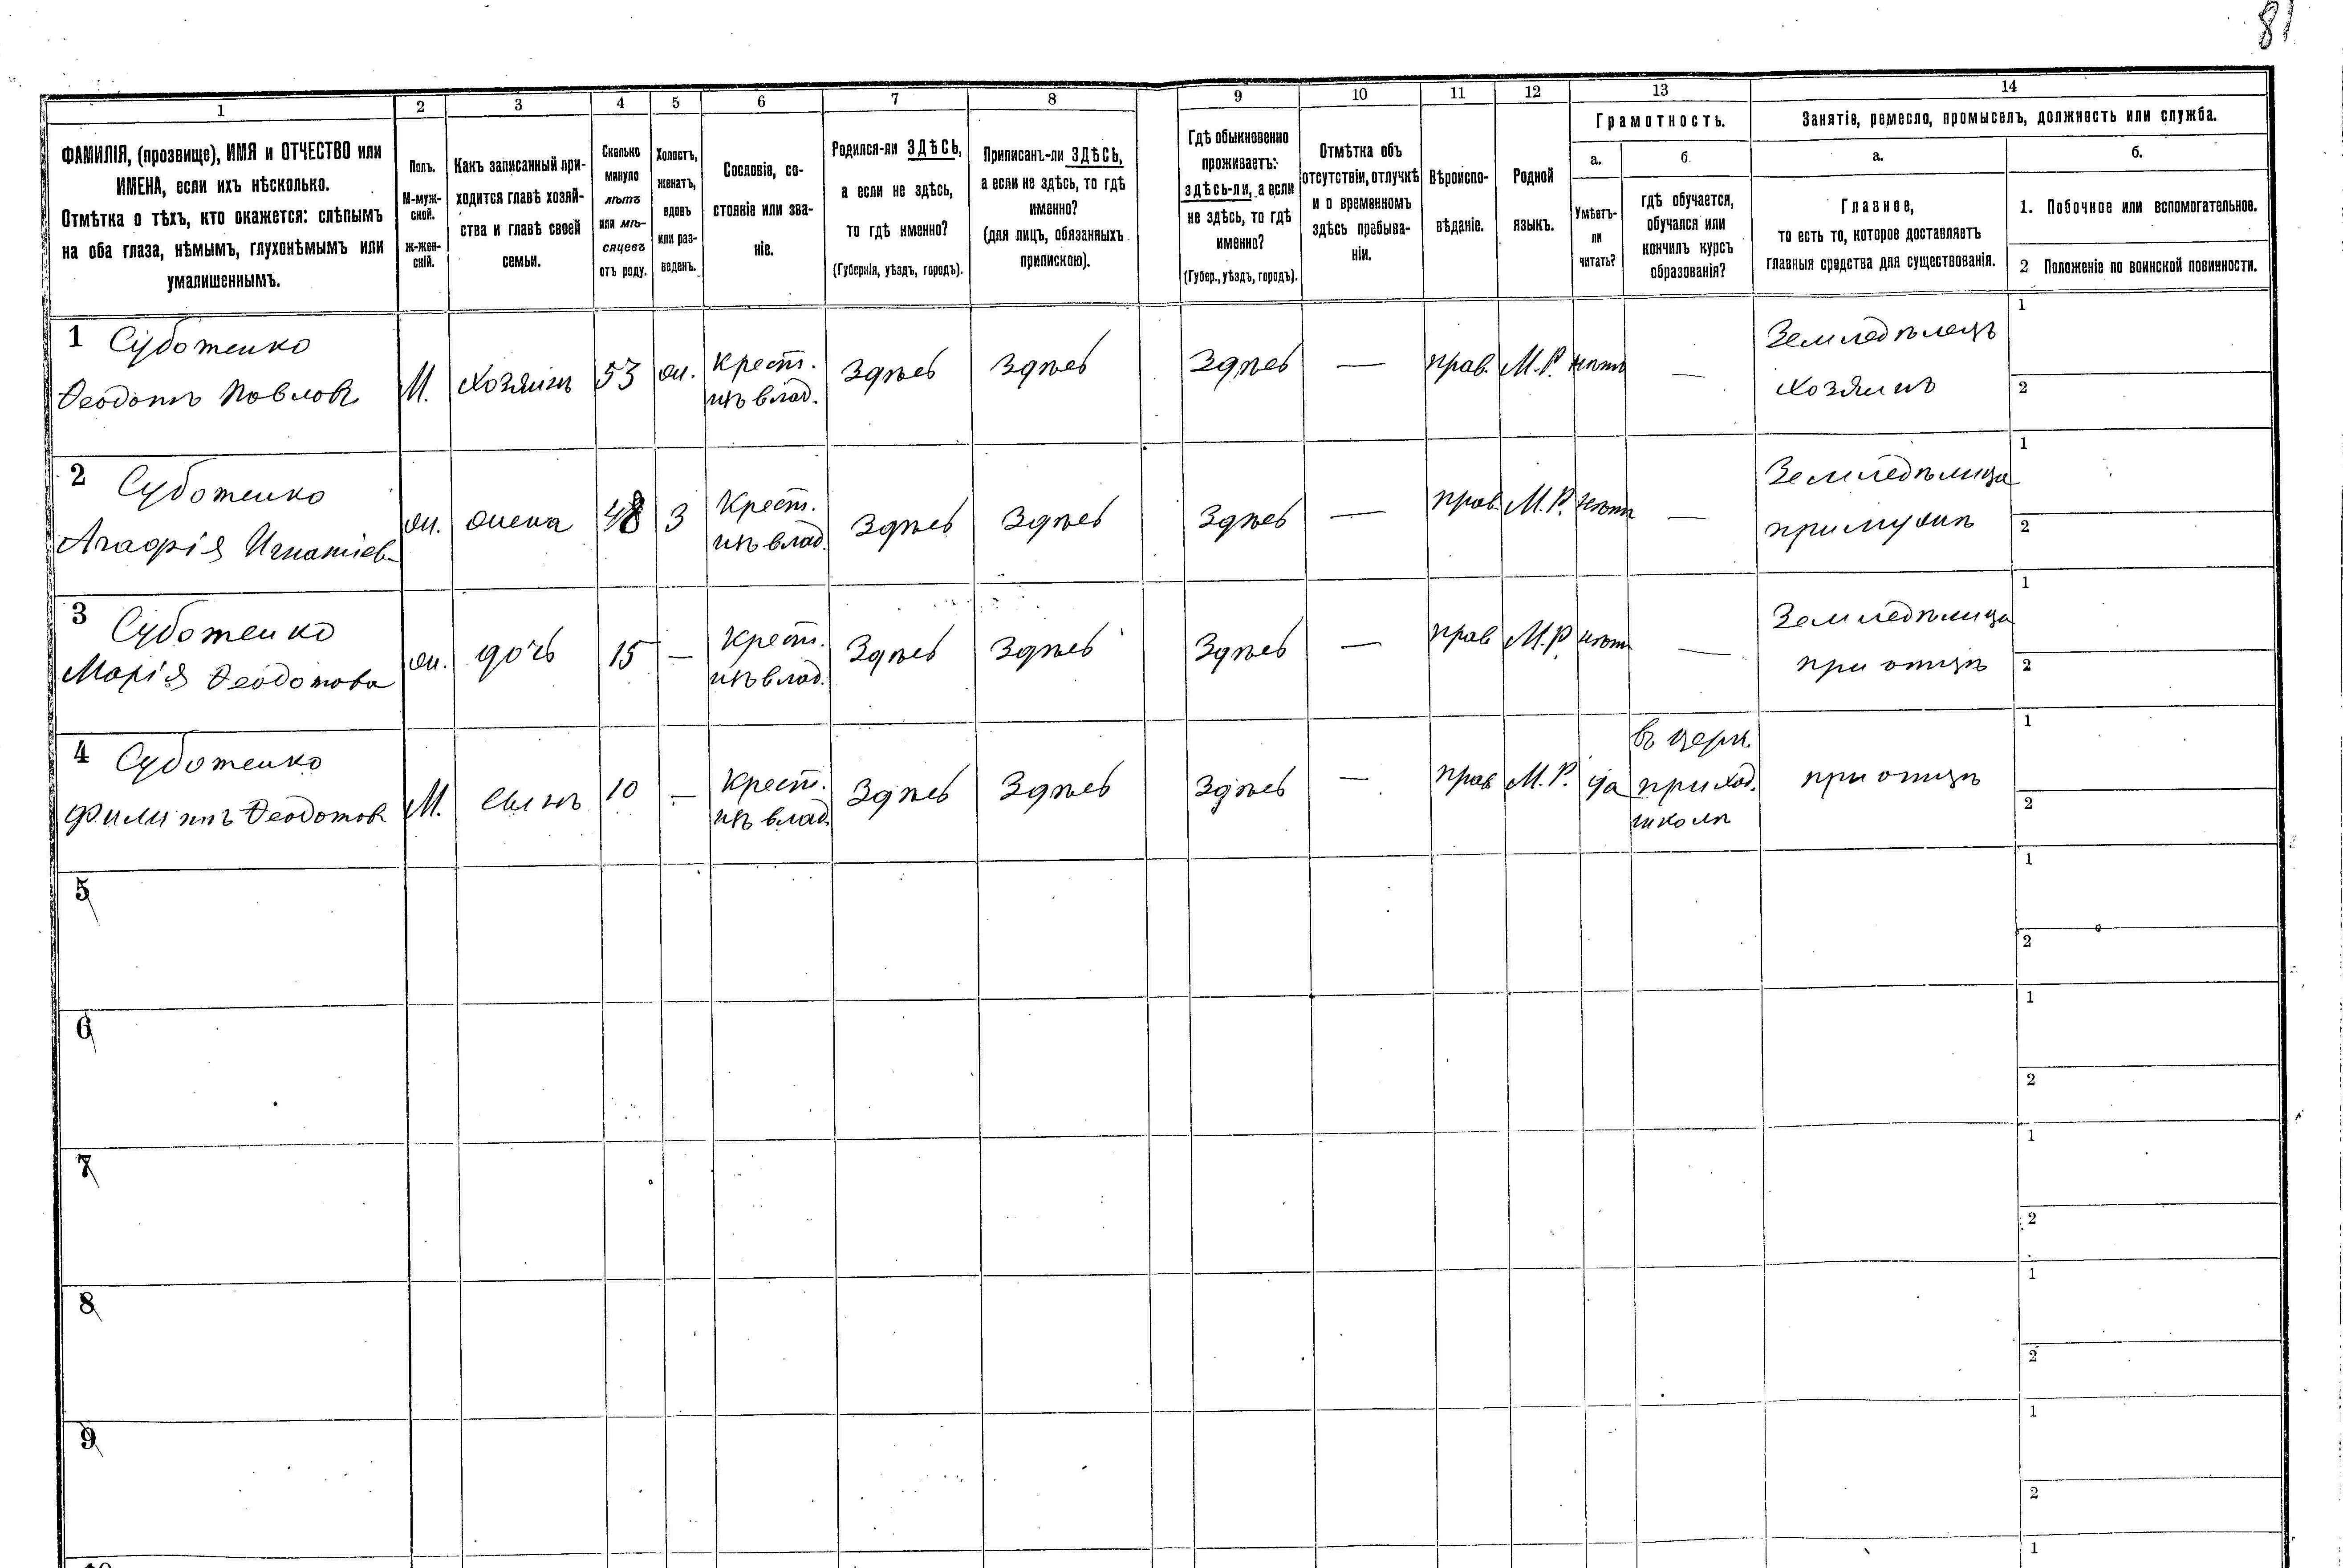 81
1
2
3
4
5
6
7
8
9
10
11
12
13
14
ФАМИЛІЯ, (прозвище), ИМЯ и ОТЧЕСТВО или
ИМЕНА, если ихъ нѣсколько.
Отмѣтка о тѣхъ, кто окажется: слѣпымъ
на оба глаза, нѣмымъ, глухонѣмымъ или
умалишеннымъ.
Полъ.
М-муж-
ской.
ж-жен-
скій.
Какъ записанный при-
ходится главѣ хозяй-
ства и главѣ своей
семьи.
Сколько
минуло
лѣтъ
или мѣ-
сяцевъ
отъ роду.
Холостъ,
женатъ,
вдовъ
или раз-
веденъ.
Сословіе, со-
стояніе или зва-
ніе.
Родился-ли ЗДѢСЬ,
а если не здѣсь,
то гдѣ именно?
(Губернія, уѣздъ, городъ).
Приписанъ-ли ЗДѢСЬ,
а если не здѣсь, то гдѣ
именно?
(для лицъ, обязанныхъ
припискою).
Гдѣ обыкновенно
проживаетъ:
здѣсь-ли, а если
не здѣсь, то гдѣ
именно?
(Губер., уѣздъ, городъ).
Отмѣтка объ
отсутствіи, отлучкѣ
и о временномъ
здѣсь пребыва-
ніи.
Вѣроиспо-
вѣданіе.
Родной
языкъ.
Грамотность.
а.
Умѣетъ-
ли
читать?
б.
гдѣ обучается,
обучался или
кончилъ курсъ
образованія?
Занятіе, ремесло, промыселъ, должность или служба.
а.
Главное,
то есть то, которое доставляетъ
главныя средства для существованія.
б.
1. Побочное или вспомогательное.
2 Положеніе по воинской повинности.
1 Суботенко
Ѳеодотъ Павловъ
М.
хозяинъ
53
ж.
крест.
изъ влад.
Здѣсь
Здѣсь
Здѣсь
—
прав.
М.Р.
нѣтъ
—
Земледѣлецъ
хозяинъ
1
2
2 Суботенко
Агафія Игнатіев
ж.
жена
48
З
Крест.
изъ влад.
Здѣсь
Здѣсь
Здѣсь
—
прав.
М.Р.
нѣтъ
—
Земледѣлица
при мужѣ
1
2
3 Суботенко
Марія Ѳеодотова
ж.
дочь
15
—
Крест.
изъ влад.
Здѣсь
Здѣсь
Здѣсь
—
прав
М.Р.
нѣтъ
—
Земледѣлица
при отцѣ
1
2
4 Суботенко
Филиппъ Ѳеодотовъ
М.
сынъ
10
—
Крест.
изъ влад.
Здѣсь
Здѣсь
Здѣсь
—
прав
М.Р.
да
въ церк.
приход.
школѣ
при отцѣ
1
2
5
1
2
6
1
2
7
1
2
8
1
2
9
1
2
1